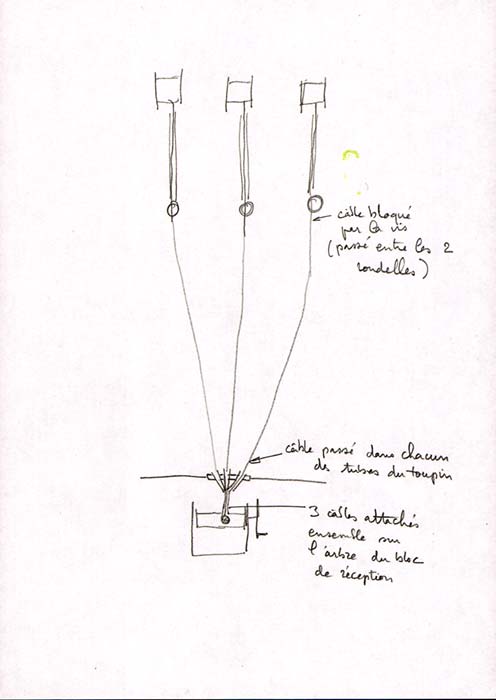 câble bloqué
par la vis
(passé entre les 2
rondelles)
câble passé dans chacun
des tubes du toupin
3 câbles attachés
ensemble sur
l'arbre du bloc
de réception